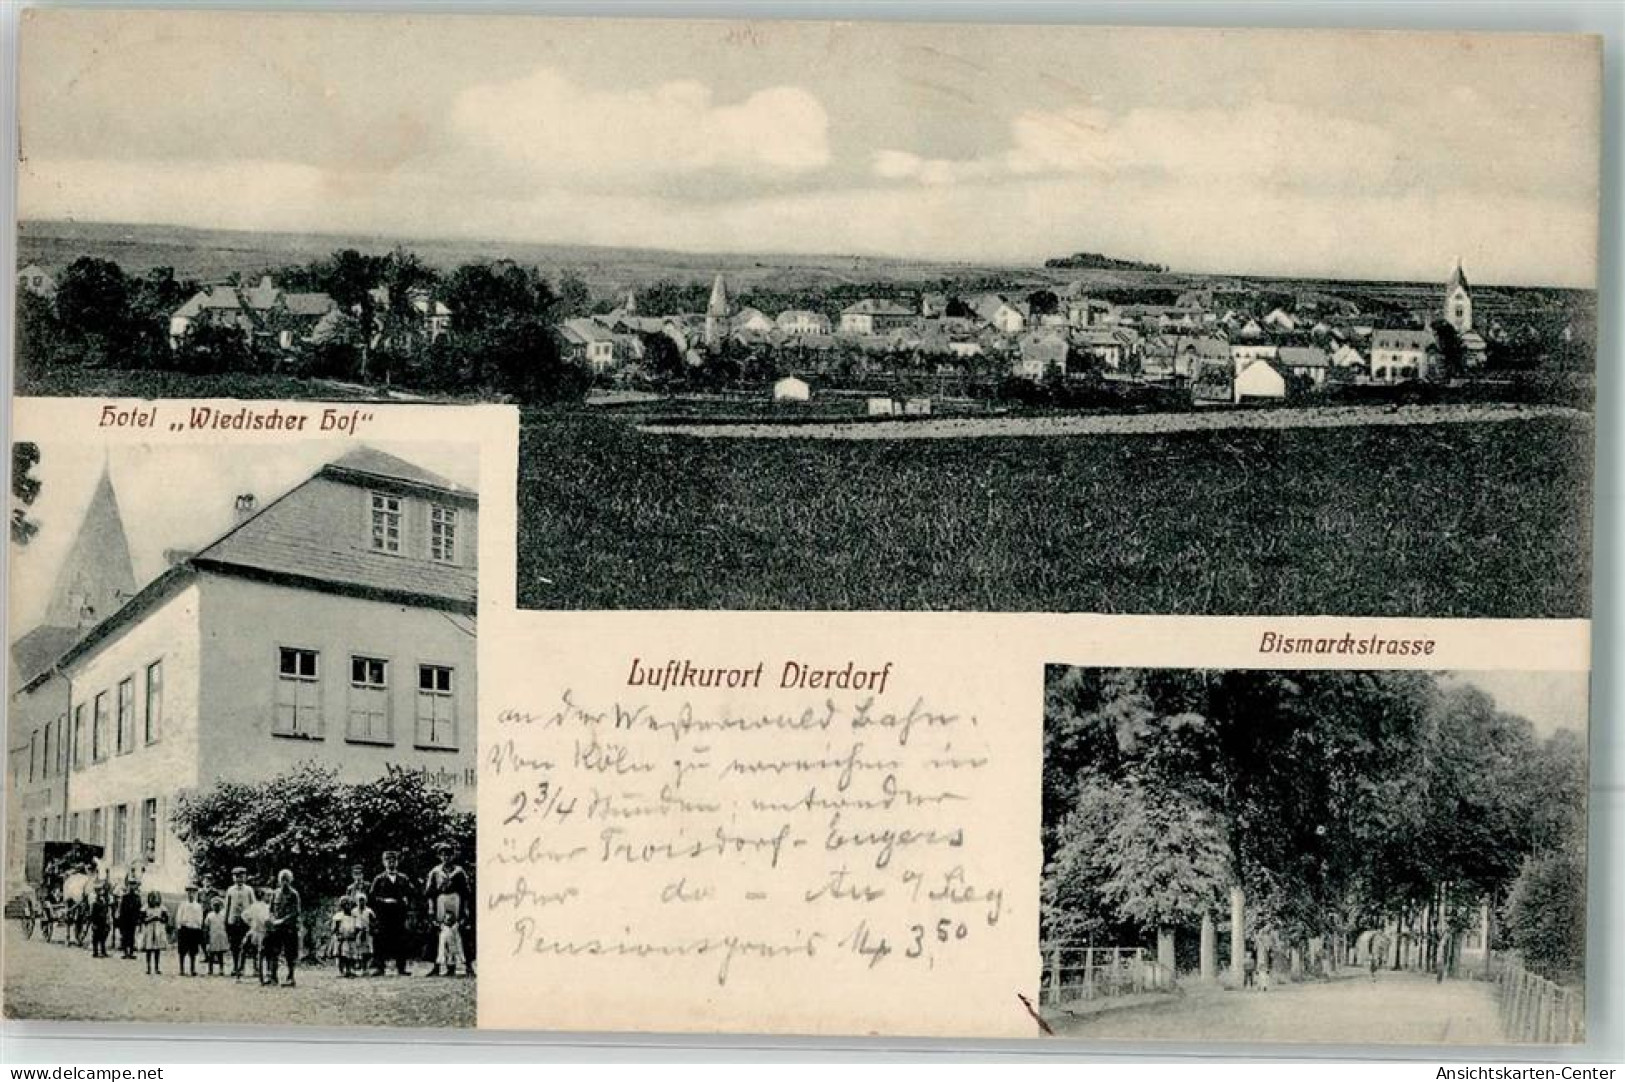 Hotel „Wiedischer Hof“
Bismarckstrasse
Luftkurort Dierdorf
an der Westerwald Bahn.
Von Köln zu erreichen in
2 3/4 Stunden, entweder
über Troisdorf - Engers
oder do - Au a/Sieg.
Pensionspreis M 3,50
AKpool.de
Ansichtskarten-Center